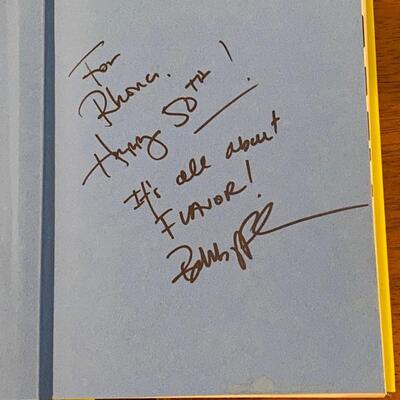 For
Rhona.
Happy 50TH!
It's all about
FLAVOR!
Bobby